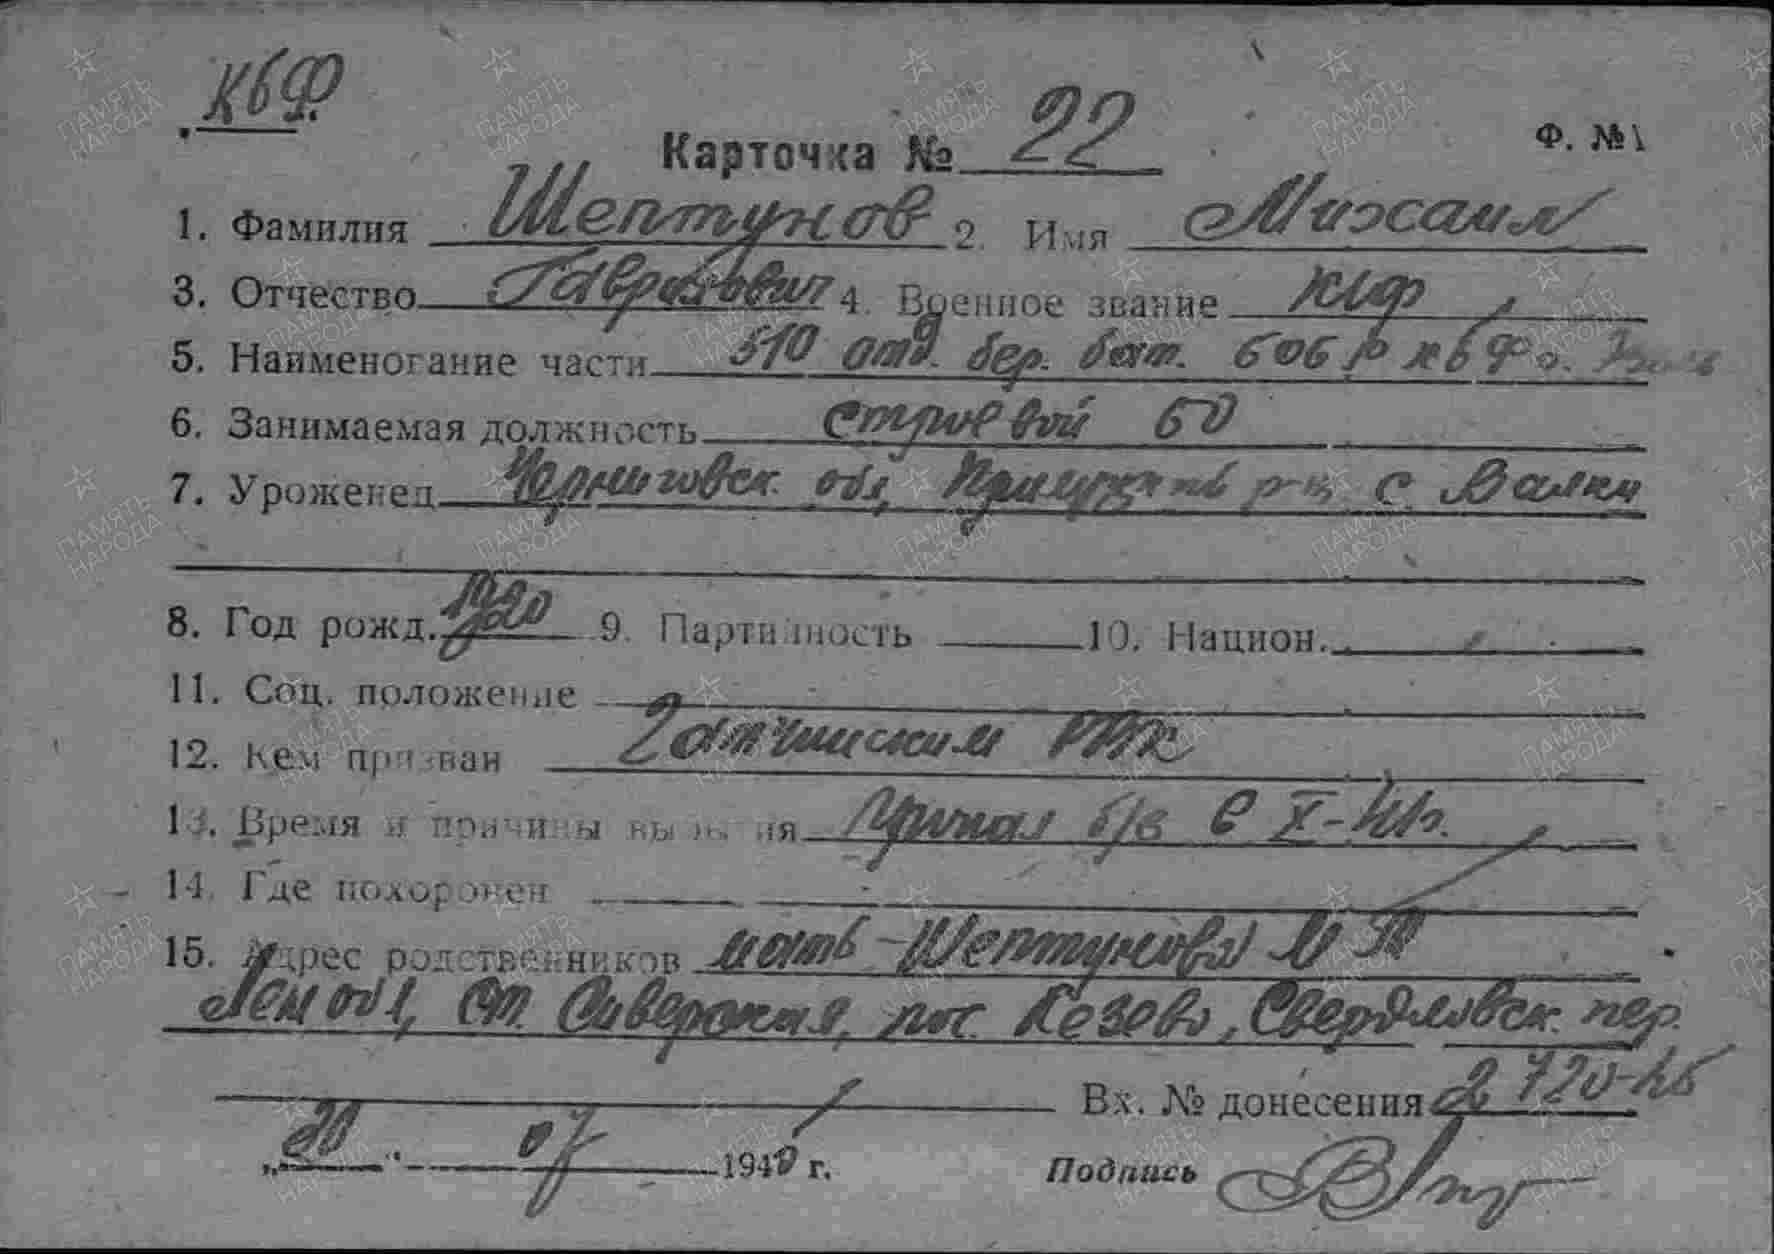 КБФ
Карточка № 22 Ф. №1
1. Фамилия Шептунов 2. Имя Михаил
3. Отчество Гаврилович 4. Военное звание к/ф
5. Наименование части 510 отд. бер. бат. БОБР КБФ о.
6. Занимаемая должность строевой БО
7. Уроженец Черниговск. обл, р-н с. Валки
8. Год рожд. 1920 9. Партийность 10. Национ.
11. Соц. положение
12. Кем призван Гатчинским РВК
13. Время и причины выбытия Пропал б/в в X-41г.
14. Где похоронен
15. Адрес родственников мать - Шептунова М
Лен обл, ст. Сиверская, пос. Кезево, Свердловск. пер.
Вх. № донесения 2720-46
„20“ 07 194 г. Подпись
ПАМЯТЬ НАРОДА